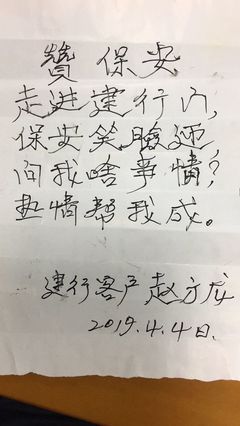 赞保安
走进建行门,
保安笑脸迎,
问我啥事情?
热情帮我成。
建行客户赵方龙
2019.4.4日.